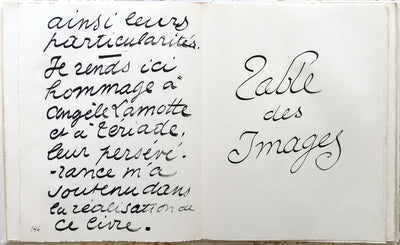 ainsi leurs
particularités.
Je rends ici
hommage à
Angèle Lamotte
et à Teriade,
leur persévé-
-rance m'a
soutenu dans
la réalisation de
ce livre.
146
Table
des
Images